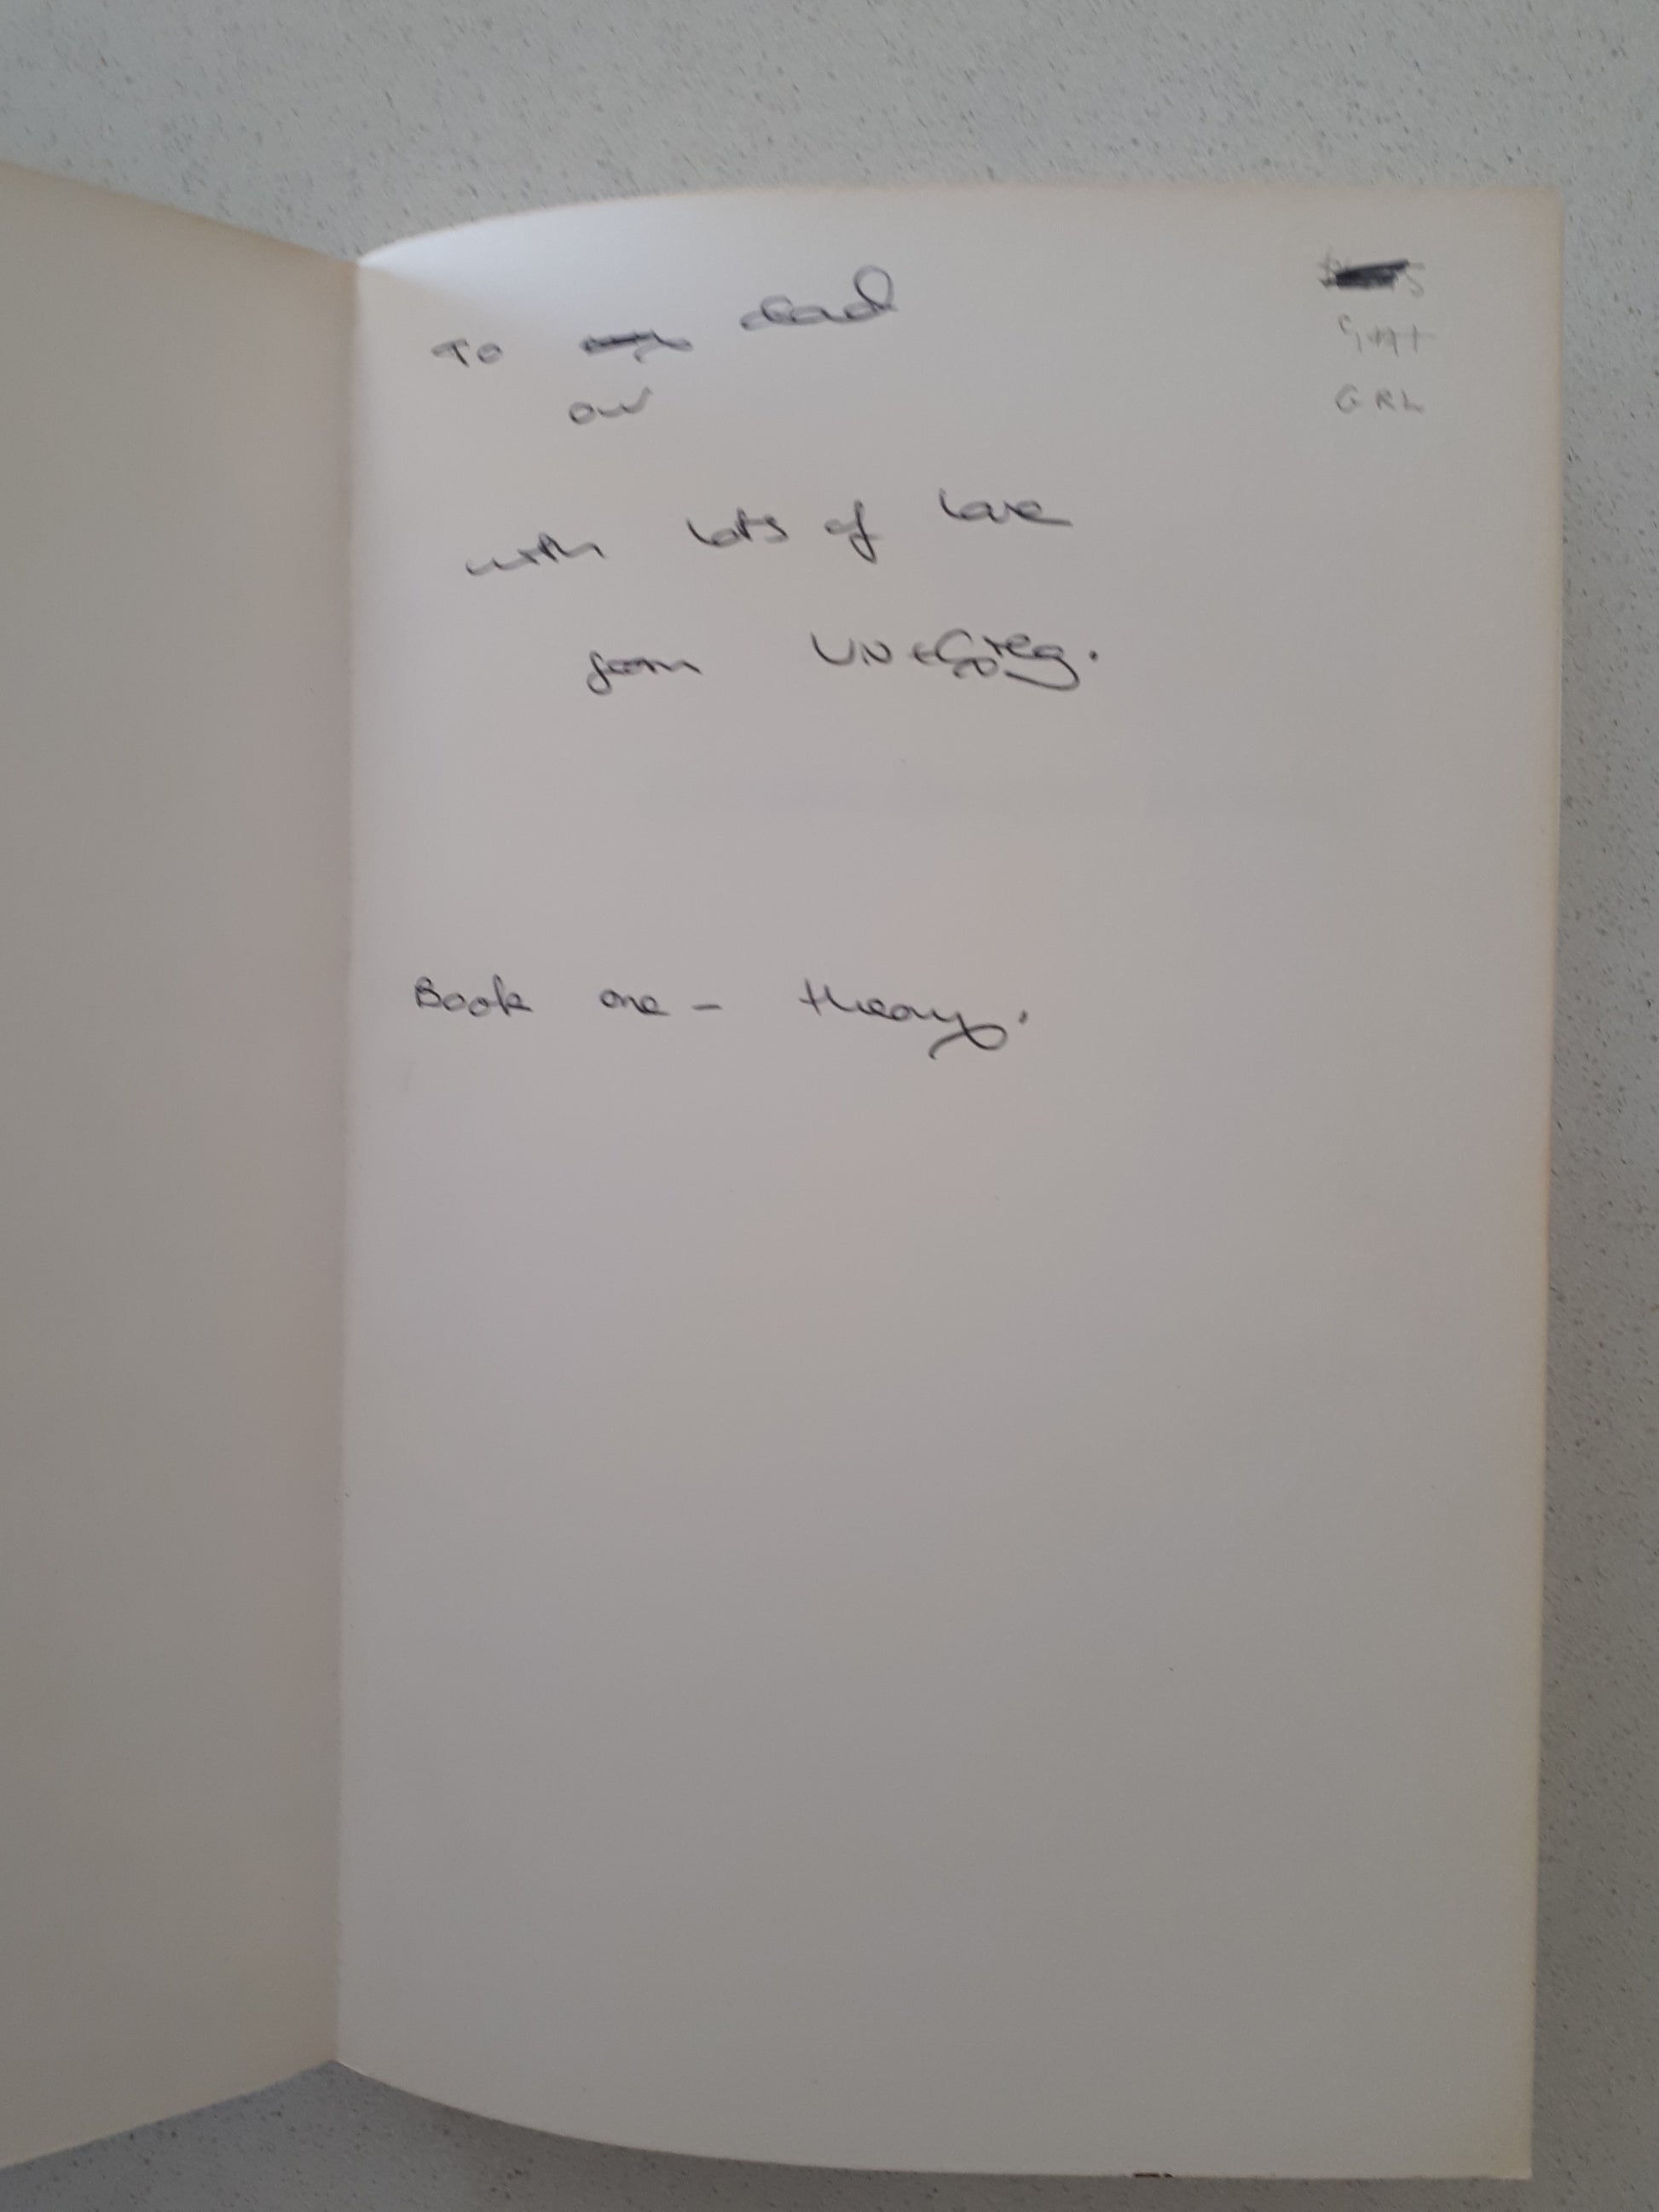 To my dad
our
with lots of love
from Viv + Greg.
Book one - theory.
GRL